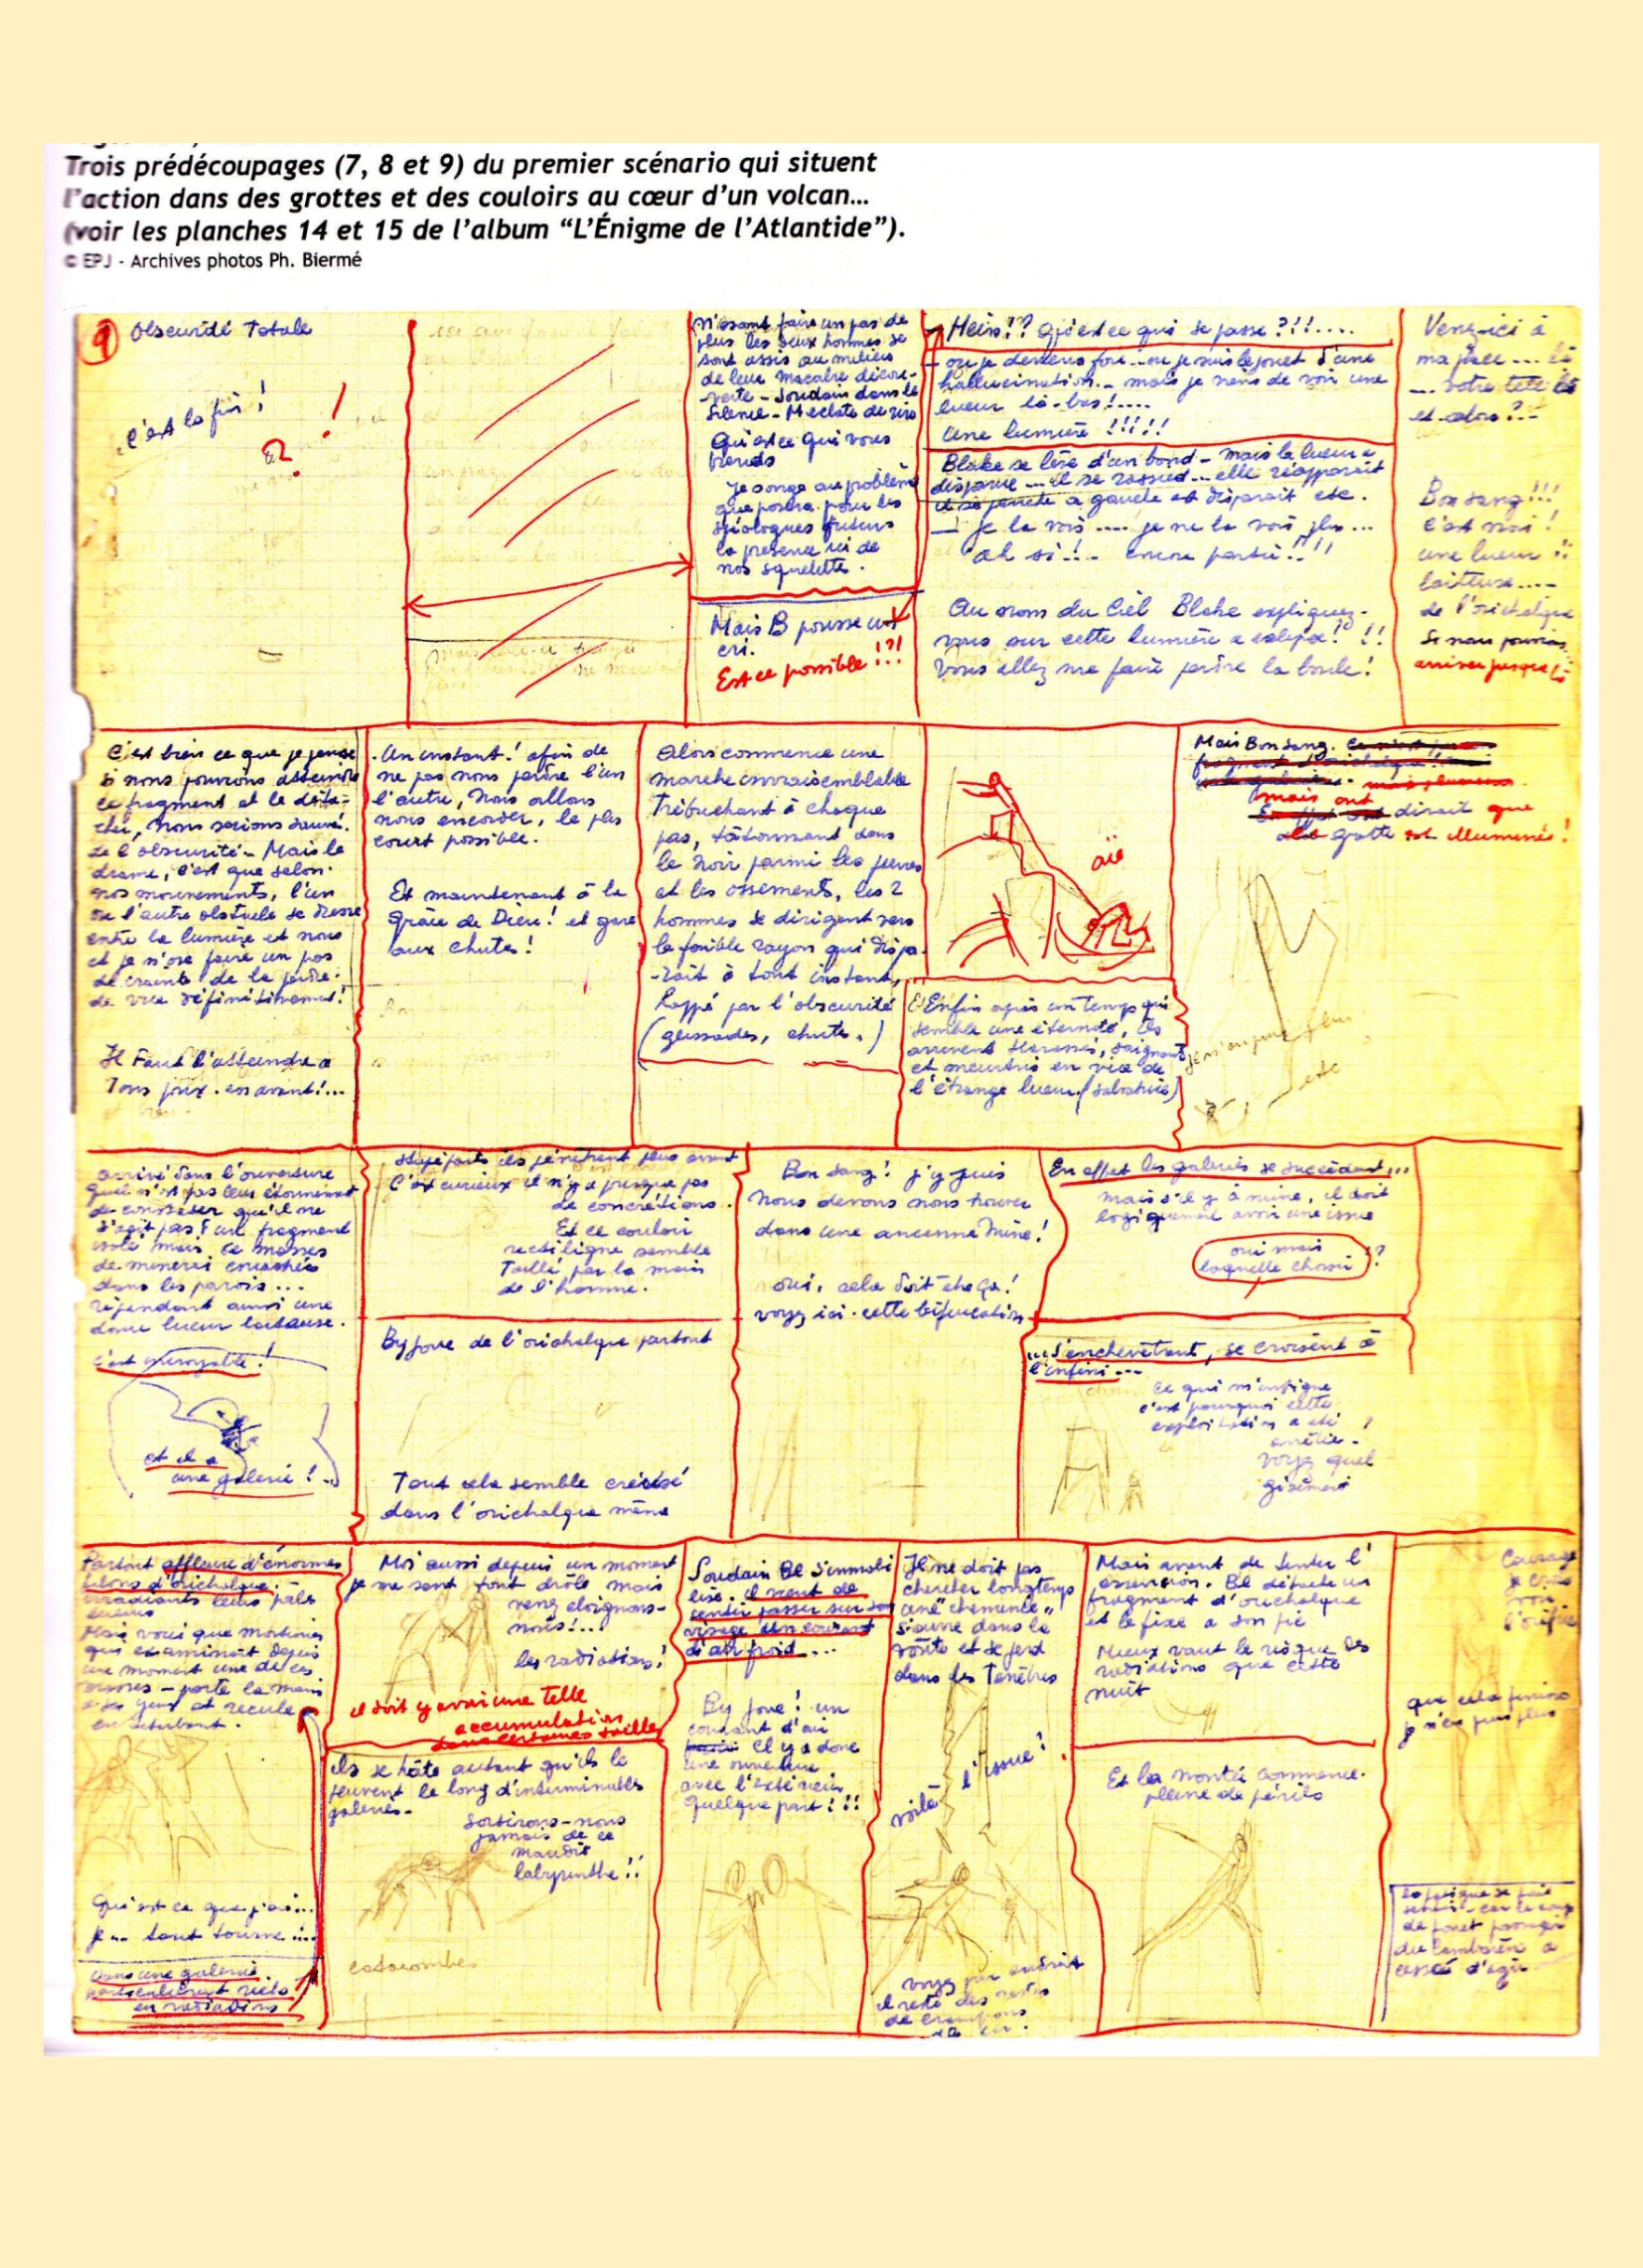 Trois prédécoupages (7, 8 et 9) du premier scénario qui situent
l'action dans des grottes et des couloirs au cœur d'un volcan...
(voir les planches 14 et 15 de l'album “L'Énigme de l'Atlantide”).
© EPJ - Archives photos Ph. Biermé
9 Obscurité Totale
c'est la fin !
!
et ?
N'osant faire un pas de
plus les deux hommes se
sont assis au milieu
de leur macabre décou-
-verte - Soudain dans le
silence - M eclate de rire
Qu'est ce qui vous
prends
je songe au problème
que posera pour les
spéologues futurs
la presence ici de
nos squelette.
Mais B pousse un
cri.
Est ce possible !?!
Hein !? Qu'est ce qui se passe ?!!....
- ou je deviens fou ... ou je suis le jouet d'une
hallucination... mais je viens de voir une
lueur là-bas !....
Une lumière !!!!!
Blake se lève d'un bond - mais la lueur a
disparue ... il se rassied ... elle réapparait
il se penche a gauche et disparait etc.
- Je la vois .... je ne la vois plus ...
ah si !.. encore partie !!!!
Au nom du Ciel Blake expliquez-
vous sur cette lumière a eclipse ! !!
Vous allez me faire perdre la boule !
Venez ici à
ma place ... là
... votre tete là
et alors ?-
Bon sang !!!
C'est vrai !
une lueur !!
laiteuse ....
de l'orichalque
Si nous pouvions
arriver jusque là
C'est bien ce que je pense
si nous pouvions atteindre
ce fragment et le déta-
cher, nous serions sauvés.
de l'obscurité - Mais le
drame, c'est que selon.
nos mouvements, l'un
ou l'autre obstacle se dresse
entre la lumière et nous
et je n'ose faire un pas
de crainte de la perdre.
de vue définitivement !
Il Faut l'atteindre a
Tous prix . en avant !...
. Un instant ! afin de
ne pas nous perdre l'un
l'autre, nous allons
nous encorder, le plus
court possible.
Et maintenant à la
grâce de Dieu ! et gare
aux chutes !
Alors commence une
marche invraisemblable
Trébuchant à chaque
pas, tâtonnant dans
le noir parmi les pierres
et les ossements, les 2
hommes se dirigent vers
le faible rayon qui dispa-
-rait à tout instant,
happé par l'obscurité
(glissades, chute.)
aïe
Enfin après un temps qui
semble une éternité, ils
arrivent harassés, saignants
et meurtris en vue de
l'étrange lueur (salvatrice)
Mais Bon sang.
mais ont
dirait que
la grotte est illuminée !
etc
arrivé dans l'ouverture
quel n'est pas leur étonnement
de constater qu'il ne
s'agit pas d'un fragment
isolé mais de masses
de minerai enchassées
dans les parois ...
répendant aussi une
douce lueur laiteuse.
C'est incroyable !
et il a
une galerie !...
Stupéfaits ils pénètrent plus avant
C'est curieux il n'y a presque pas
de concrétions.
Et ce couloir
rectiligne semble
Taillé par la main
de l'homme.
By jove de l'orichalque partout
Tout cela semble creusé
dans l'orichalque même
Bon sang ! j'y suis
nous devons nous trouver
dans une ancienne mine !
oui, cela doit être ça !
voyez ici . cette bifurcation
En effet les galeries se succèdent ...
mais s'il y a mine, il doit
logiquement avoir une issue
oui mais
laquelle choisir ??
... s'enchevêtrent, se croisent à
l'infini ...
ce qui m'intrigue
c'est pourquoi cette
exploitation a été
arrêtée.
voyez quel
gisement
Partout affleure d'énormes
filons d'orichalque.
irradiants leurs pâles
lueurs
Mais voici que Mortimer
qui examinait depuis
un moment une de ces
- porte la main
a ses yeux et recule
en titubant.
Qu'est ce que j'ai ...
je ... tout tourne ...
dans une galerie
particulièrement riche
en radiations
Moi aussi depuis un moment
je me sent tout drôle mais
venez eloignons-
nous !...
les radiations !
il doit y avoir une telle
accumulation
dans certaines tailles
Ils se hâte autant qu'ils le
peuvent le long d'interminables
galeries.
Sortirons-nous
jamais de ce
maudit
labyrinthe !!
catacombes
Soudain Bl s'immobi
lise. il vient de
sentir passer sur son
visage un courant
d'air froid ...
By Jove ! un
courant d'air
il y a donc
une ouverture
avec l'extérieur
quelque part ! !!
Il ne doit pas
chercher longtemps
une "cheminée"
s'ouvre dans la
voûte et se perd
dans les Tenèbres
voilà l'issue !
voyez par endroit
il reste des restes
de crampons
de fer.
Mais avant de tenter l'
ascension. Bl détache un
fragment d'orichalque
et le fixe a son pic
Mieux vaut le risque des
radiations que cette
nuit
Et la montée commence.
pleine de périls
Courage
je crois
voir
l'orifice
que cela finisse
je n'en puis plus
la fatigue se fait
sentir - car le coup
de fouet passager
du a
cessé d'agir